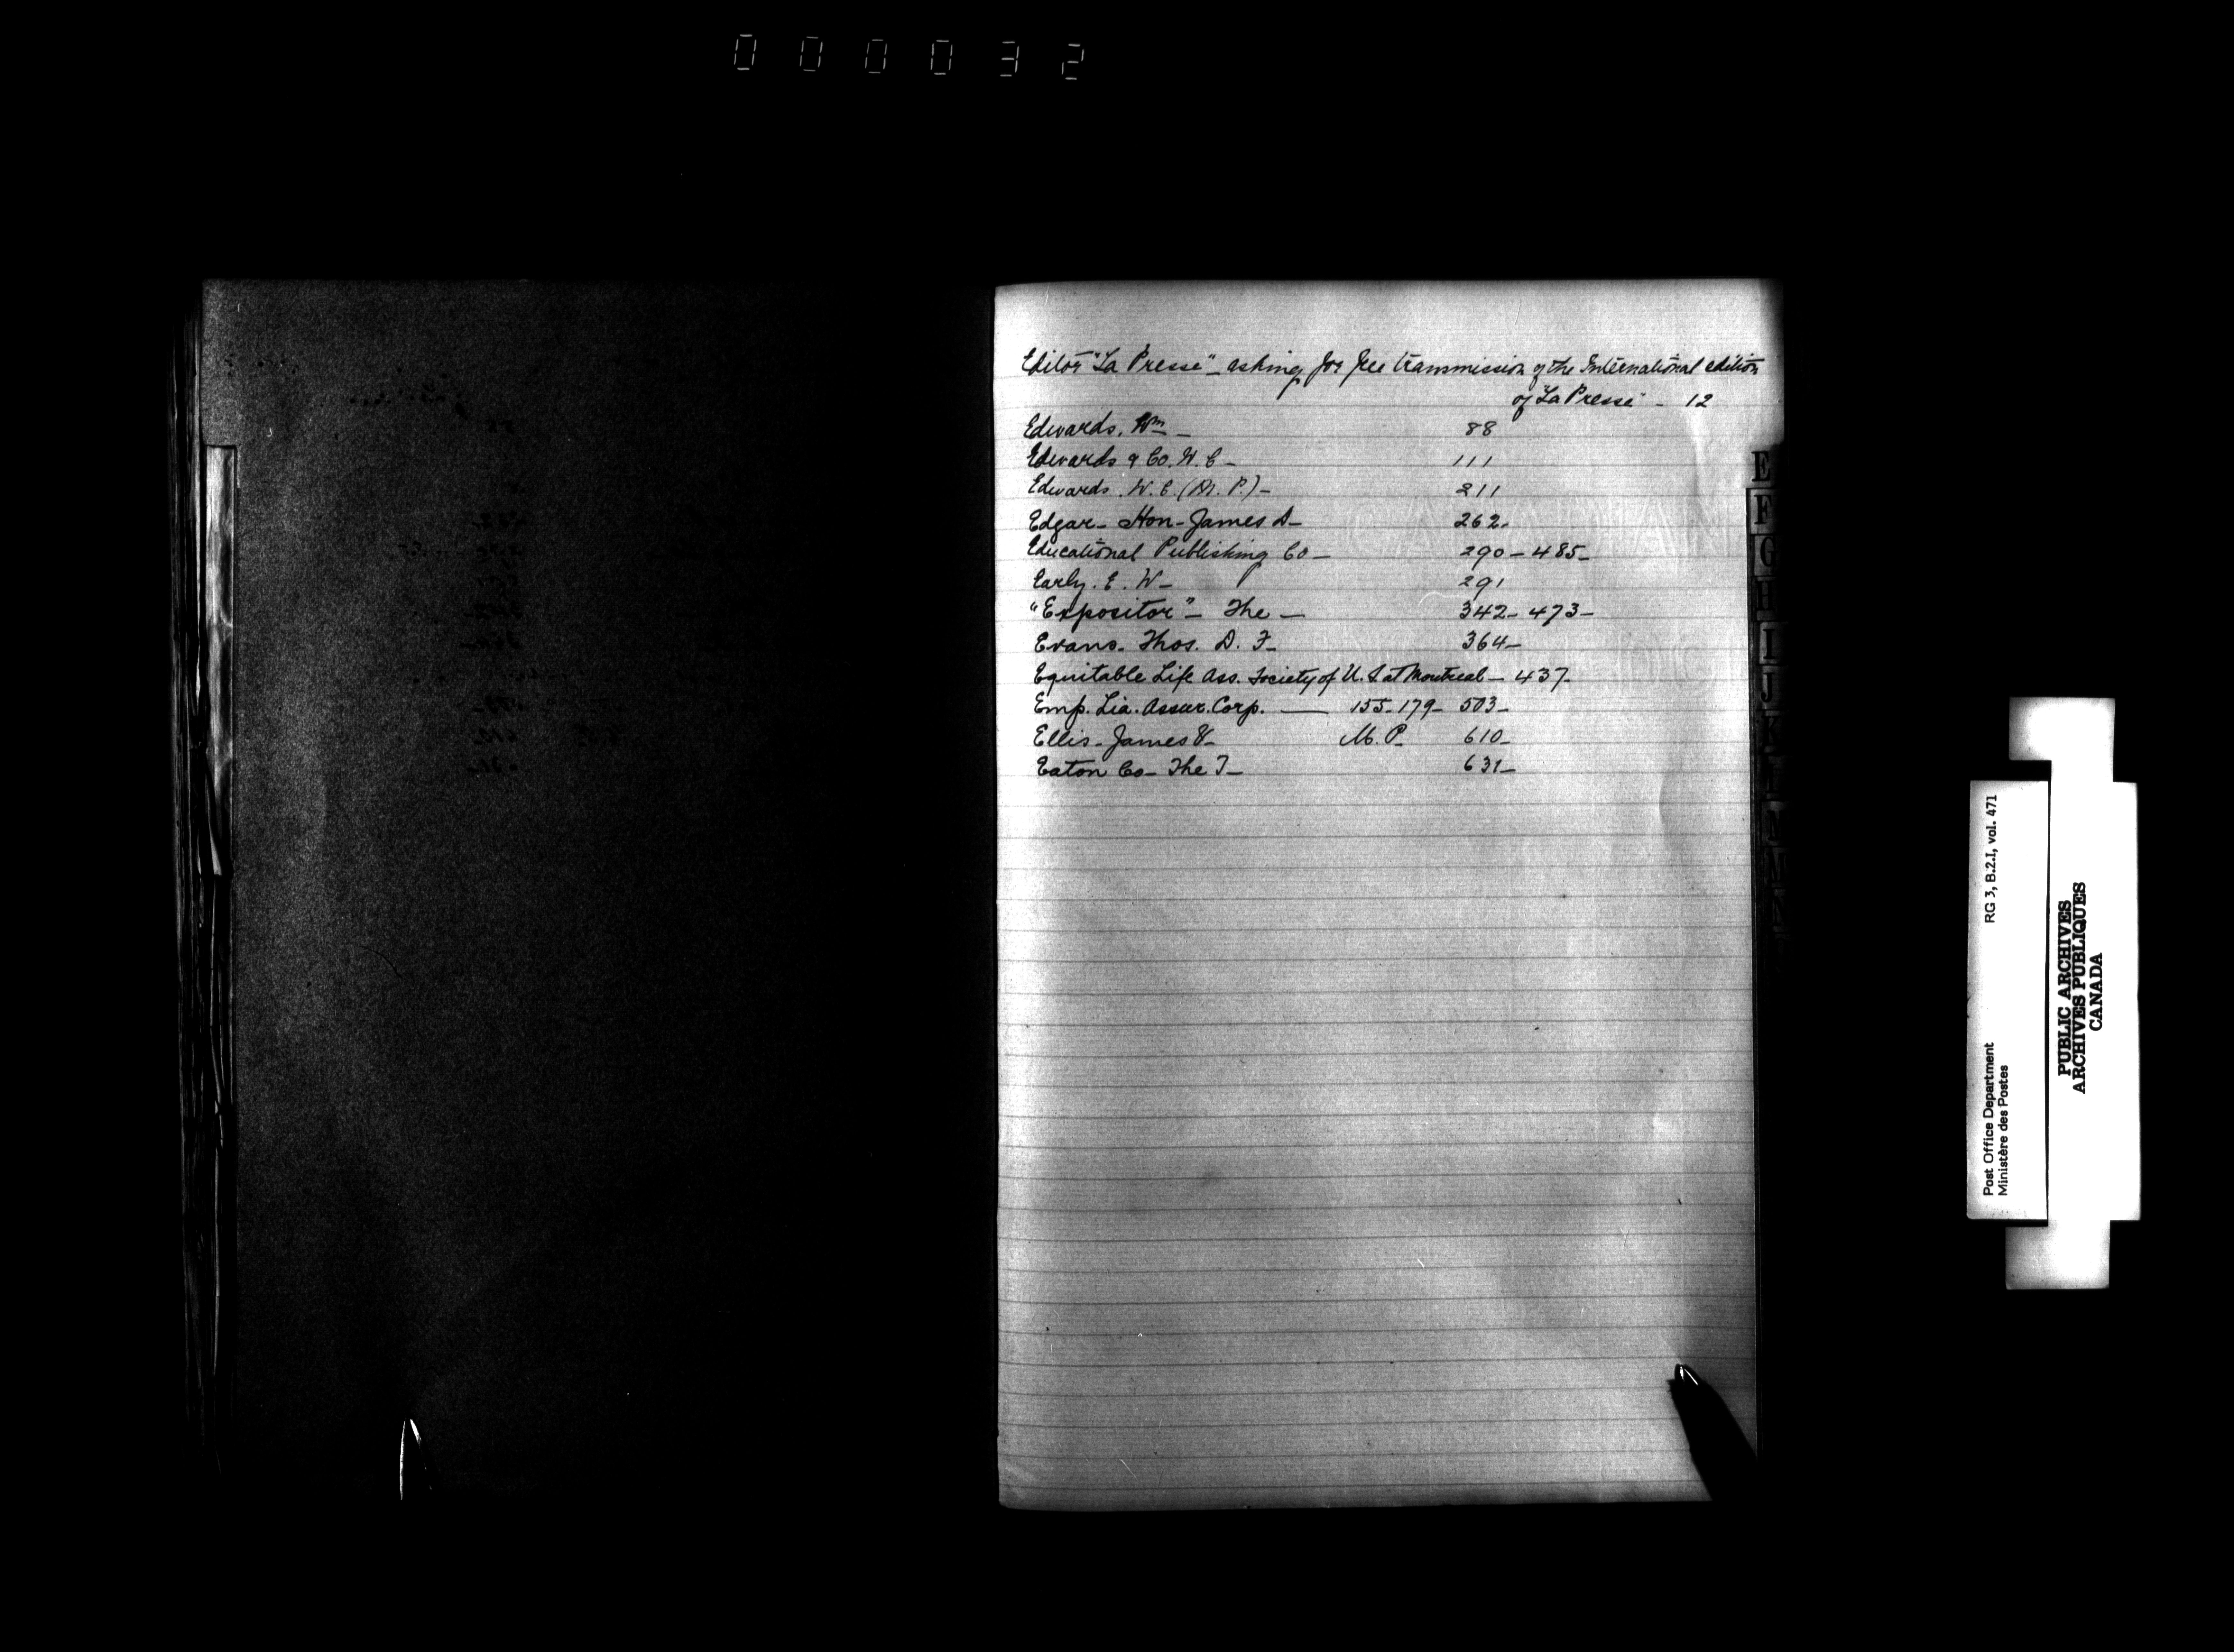 000032
Editor "La Presse" - asking for free transmission of the International edition
of "La Presse" - 12
Edwards. Wm - 88
Edwards & Co. W. C - 111
Edwards. W. C. (M. P.) - 211
Edgar - Hon - James D - 262.
Educational Publishing Co - 290 - 485 -
Early. E. W - 291
"Expositor" - The - 342 - 473 -
Evans. Thos. D. F. 364 -
Equitable Life Ass. Society of U. S. at Montreal - 437.
Emp. Lia. Assur. Corp. — 155 - 179 - 503 -
Ellis - James V - M. P. 610 -
Eaton Co - The T - 631 -
E
F
G
H
I
J
K
Post Office Department RG 3, B.2.I, vol. 471
Ministère des Postes
PUBLIC ARCHIVES
ARCHIVES PUBLIQUES
CANADA